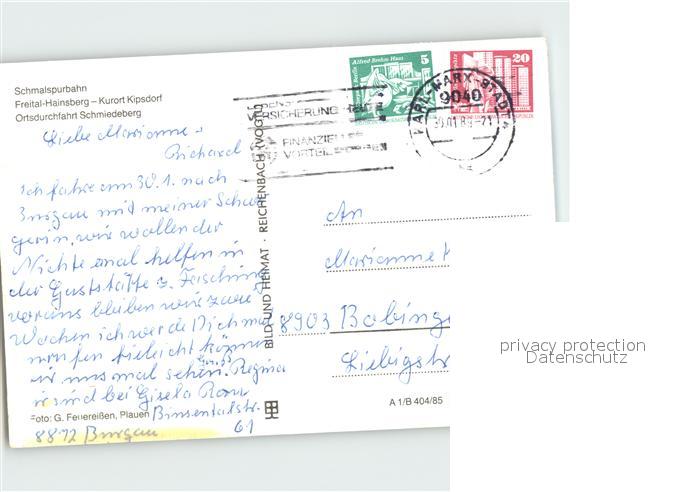 Schmalspurbahn
Freital-Hainsberg – Kurort Kipsdorf
Ortsdurchfahrt Schmiedeberg
Liebe Marianne,
Richard
Ich fahre am 30.1. nach
Burgau mit meiner Schwä
gerin, wir wollen der
Nichte mal helfen in
der Gaststätte z. Fasching
voraus bleiben wir zwei
Wochen ich werde Dich mal
anrufen vieleicht können
wir uns mal sehen. Regina
wir sind bei Gisela
Foto: G. Feuereißen, Plauen Binsentalstr.
8872 Burgau 61
BILD UND HEIMAT · REICHENBACH (VOGTL)
Alfred Brehm Haus
5
20
KARL-MARX-STADT
9040
30.01.89-21
VERSICHERUNG
FINANZIELLE
VORTEILE
An
Marianne
8903 Bobing
Liebigstr
A 1/B 404/85
privacy protection
Datenschutz